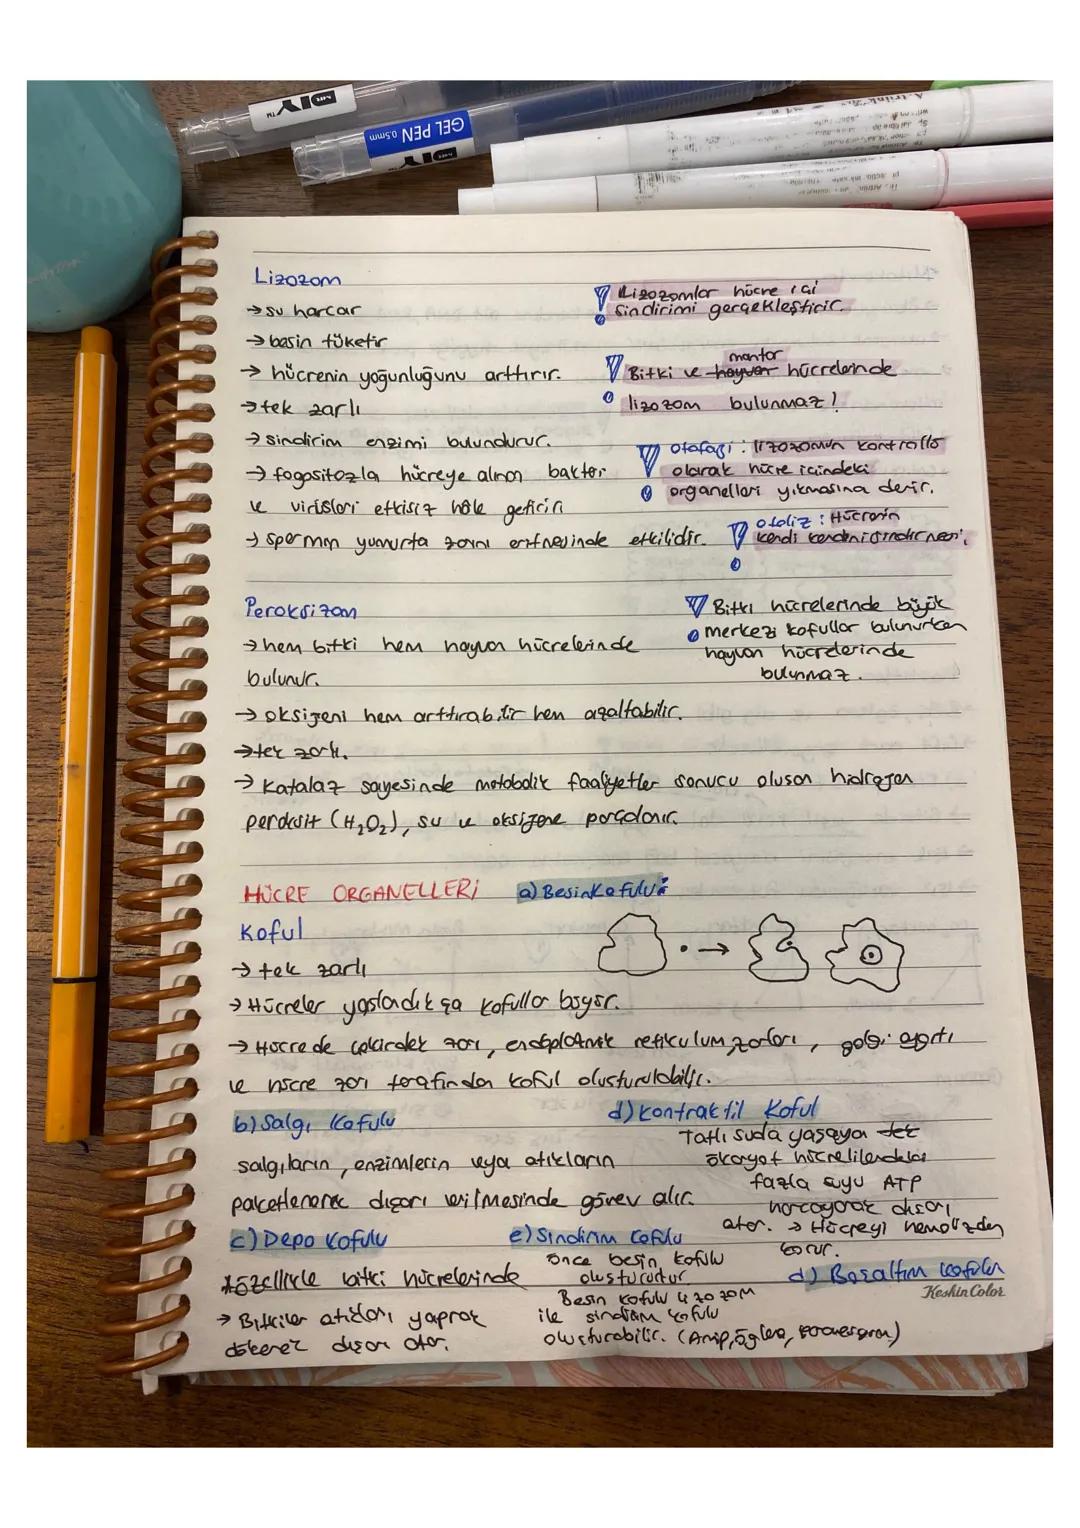 DIY
GEL PEN 0.5mm
DIY
Lizozom
→ su harcar
→ besin tüketir
→ hücrenin yoğunluğunu arttırır.
→ tek zarlı
→ sindirim enzimi bulundurur.
→ fagositozla hücreye alınan bakteri
ve virüsleri etkisiz hale getirir
→ spermin yumurta zarını eritmesinde etkilidir.
Lizozomlar hücre içi
sindirimi gerçekleştirir.
mantar
Bitki ve hayvan hücrelerinde
lizozom bulunmaz!
otofaji: lizozomun kontrollü
olarak hücre içindeki
organelleri yıkmasına denir.
otoliz: Hücrenin
kendi kendini sindirmesi.
Peroksizom
→ hem bitki hem hayvan hücrelerinde
bulunur.
→ oksijeni hem arttırabilir hem azaltabilir.
→ tek zarlı.
→ Katalaz sayesinde metabolik faaliyetler sonucu oluşan hidrojen
peroksit (H₂O₂), su ve oksijene parçalanır.
Bitki hücrelerinde büyük
merkezi kofullar bulunurken
hayvan hücrelerinde
bulunmaz.
HÜCRE ORGANELLERİ
a) Besin Kofulu:
Koful
→ tek zarlı
→ Hücreler yaşlandıkça kofullar büyür.
→ Hücrede çekirdek zarı, endoplazmik retikulum zarları, golgi aygıtı
ve hücre zarı tarafından koful oluşturulabilir.
b) Salgı Kofulu
salgıların, enzimlerin veya atıkların
paketlenerek dışarı verilmesinde görev alır.
c) Depo Kofulu
özellikle bitki hücrelerinde
→ Bitkiler atıkları yaprak
dökerek dışarı atar.
d) Kontraktil Koful
Tatlı suda yaşayan tek
ökaryot hücrelilerdeki
fazla suyu ATP
harcayarak dışarı
atar. → Hücreyi hemolizden
korur.
e) Sindirim Kofulu
önce besin kofulu
oluşturulur
Besin kofulu lizozom
ile sindirim kofulu
oluşturabilir. (Amip, öglena, paramesyum)
d) Boşaltım kofulları
Keskin Color